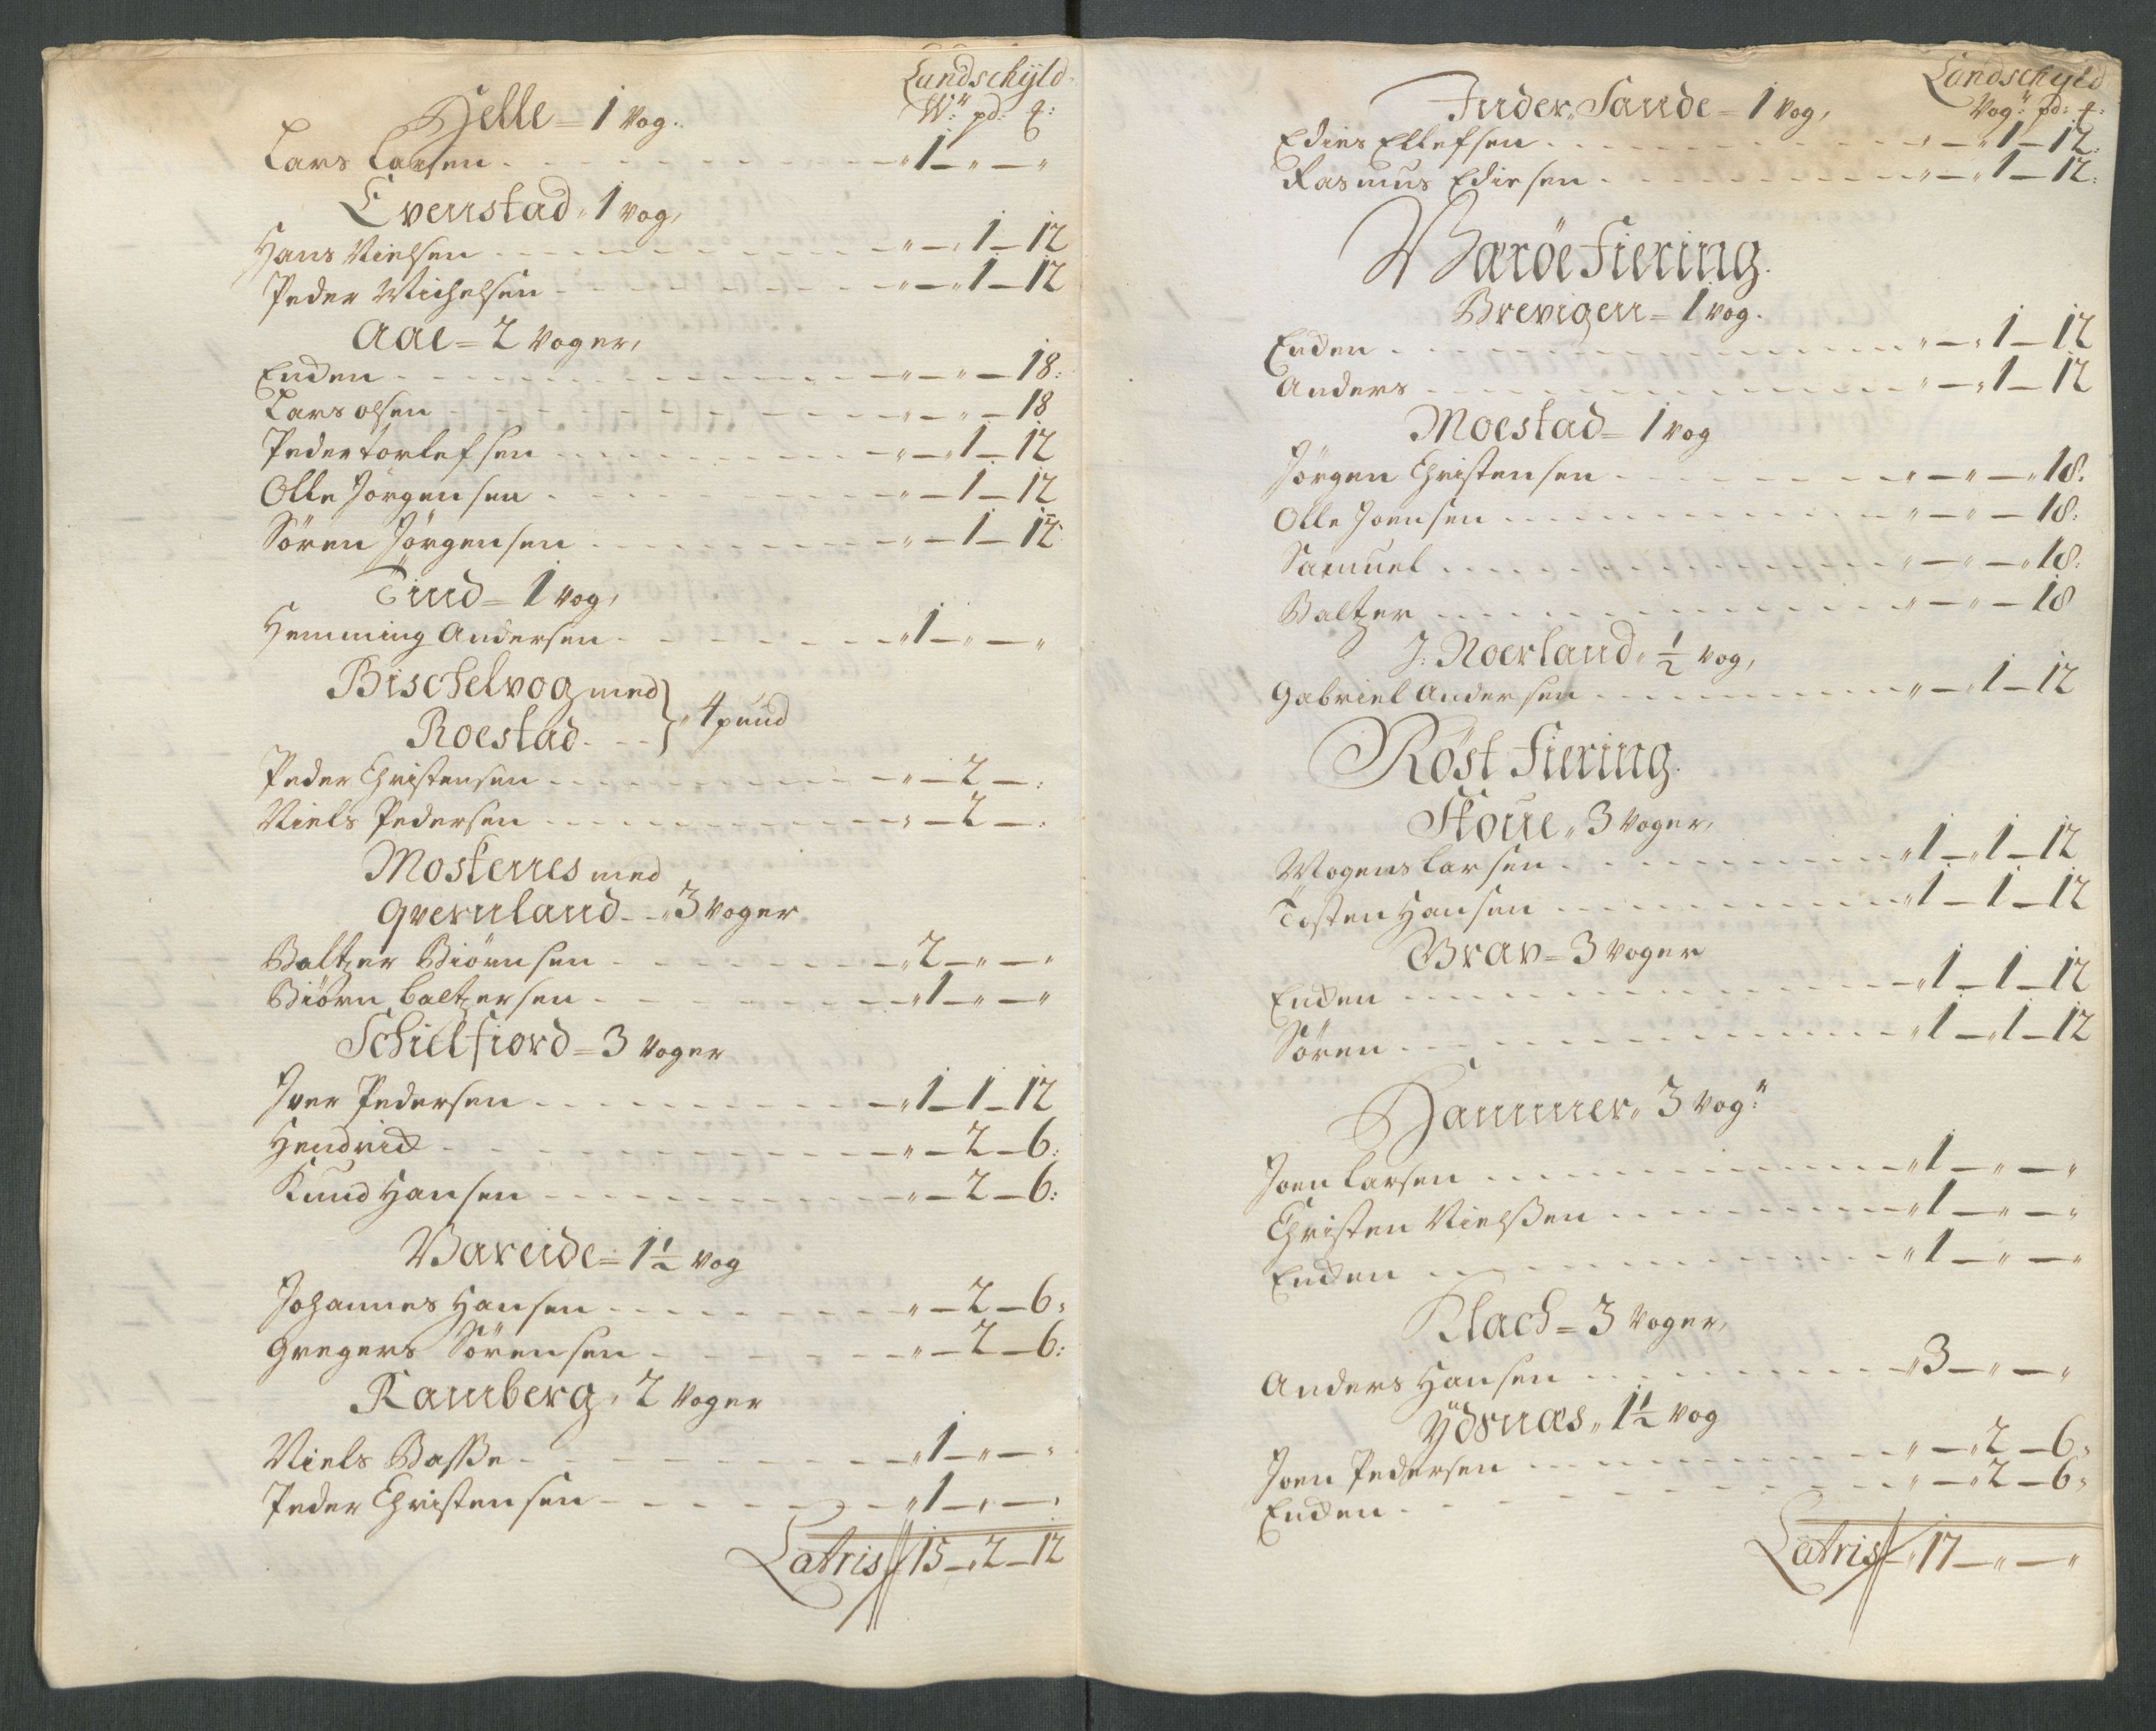 Landschyld
W:" pd: ȶ:
Helle = 1 Vog.
Lars Larsen - - - " 1 - " - "
Evenstad " 1 vog,
Hans Nielsen - - - " - " 1 - 12
Peder Michelsen - - - " - " 1 - 12
Aae = 2 Voger,
Enchen - - - " - " - 18:
Lars olsen - - - " - " - 18
Peder torlefsen - - - " - " 1 - 12
Olle Jörgensen - - - " - 1 - 12
Sören Jörgensen - - - " - 1 - 12
Tind = 1 Vog,
Hemming Andersen - - - " 1 - " - "
Bischelvog med } " 4 pund
Roestad - - -
Peder Christensen - - - " - 2 - :
Niels Pedersen - - - " - 2 - :
Moskenes med
qvernland - - " 3 Voger
Baltzer Biörnsen - - - " 2 - " - "
Biörn baltzersen - - - " 1 - " - "
Schielfiord = 3 Voger
Iver Pedersen - - - " 1 - 1 - 12
Hendrick - - - " - 2 - 6:
Knud Hansen - - - " - 2 - 6:
Vareide = 1 1/2 Vog
Johannes Hansen - - - " - 2 - 6:
Gregers Sörensen - - - " - 2 - 6:
Ramberg, 2 Voger
Niels Basse - - - " 1 - " - "
Peder Christensen - - - " 1 - " - "
Latris 15 - 2 - 12
Landschyld
Vog:" pd: ȶ:
Inder Sande = 1 Vog,
Edies Ellefsen - - - " - " 1 - 12:
Rasmus Ediesen - - - " - " 1 - 12:
Wæröe Fiering.
Brevigen = 1 vog.
Enden - - - " - " 1 - 12
Anders - - - " - " 1 - 12
Moestad = 1 vog
Jörgen Christensen - - - " - " - " 18.
Olle Joensen - - - " - " - 18:
Samuel - - - " - " - " 18:
Baltzer - - - " - " - 18
J: Noerland " 1/2 vog,
Gabriel Andersen - - - " - " 1 - 12
Röst Fiering.
Stoue " 3 Voger,
Mogens larsen - - - " 1 - " 1 - 12
Tosten Hansen - - - " 1 - 1 - 12
Brav = 3 Voger
Enden - - - " 1 - 1 - 12
Sören - - - " 1 - " 1 - 12
Hammer " 3 Vog:"
Joen larsen - - - " 1 - " - "
Christen Nielssen - - - " 1 - " - "
Enden - - - " 1 - " - "
Klach = 3 Voger,
Anders Hansen - - - " 3 - " - "
Ydsnæs " 1 1/2 Vog
Joen Pedersen - - - " - " 2 - 6:
Enden - - - " - " 2 - 6:
Latris " 17 - " - "